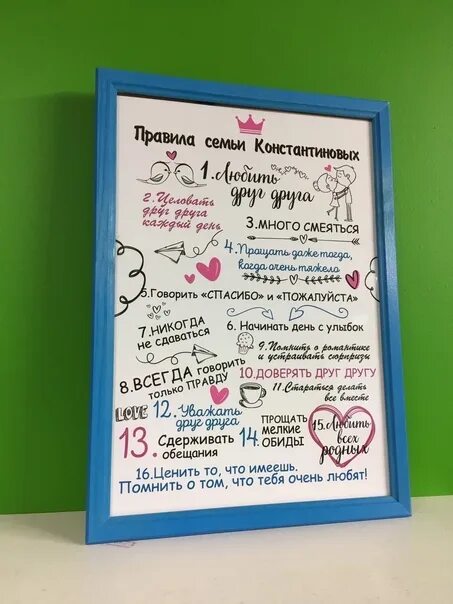 Правила семьи Константиновых
1. Любить
друг друга
2. Целовать
друг друга
каждый день
3. МНОГО СМЕЯТЬСЯ
4. Прощать даже тогда,
когда очень тяжело
5. Говорить «СПАСИБО» и «ПОЖАЛУЙСТА»
6. Начинать день с улыбок
7. НИКОГДА
не сдаваться
8. ВСЕГДА говорить
только ПРАВДУ
9. Помнить о романтике
и устраивать сюрпризы
10. ДОВЕРЯТЬ ДРУГ ДРУГУ
11. Стараться делать
все вместе
LOVE
12. Уважать
друг друга
13. Сдерживать
обещания
14. ПРОЩАТЬ
МЕЛКИЕ
ОБИДЫ
15. Любить
всех
родных
16. Ценить то, что имеешь.
Помнить о том, что тебя очень любят!